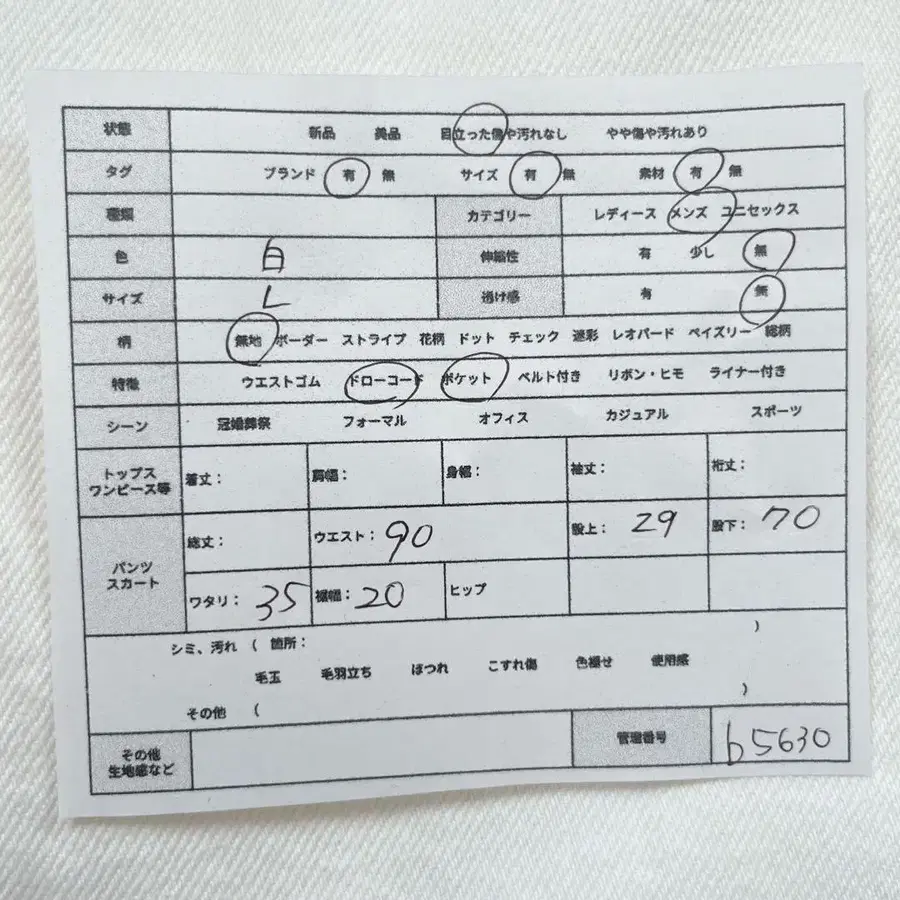 状態 新品 美品 目立った傷や汚れなし やや傷や汚れあり
タグ ブランド 有 無 サイズ 有 無 素材 有 無
種類 カテゴリー レディース メンズ ユニセックス
色 白 伸縮性 有 少し 無
サイズ L 透け感 有 無
柄 無地 ボーダー ストライプ 花柄 ドット チェック 迷彩 レオパード ペイズリー 総柄
特徴 ウエストゴム ドローコード ポケット ベルト付き リボン・ヒモ ライナー付き
シーン 冠婚葬祭 フォーマル オフィス カジュアル スポーツ
トップス
ワンピース等 着丈： 肩幅： 身幅： 袖丈： 裄丈：
パンツ
スカート
総丈： ウエスト： 90 股上： 29 股下： 70
ワタリ： 35 裾幅： 20 ヒップ
シミ、汚れ （ 箇所： ）
毛玉 毛羽立ち ほつれ こすれ傷 色褪せ 使用感
その他 （ ）
その他
生地感など 管理番号 b5630